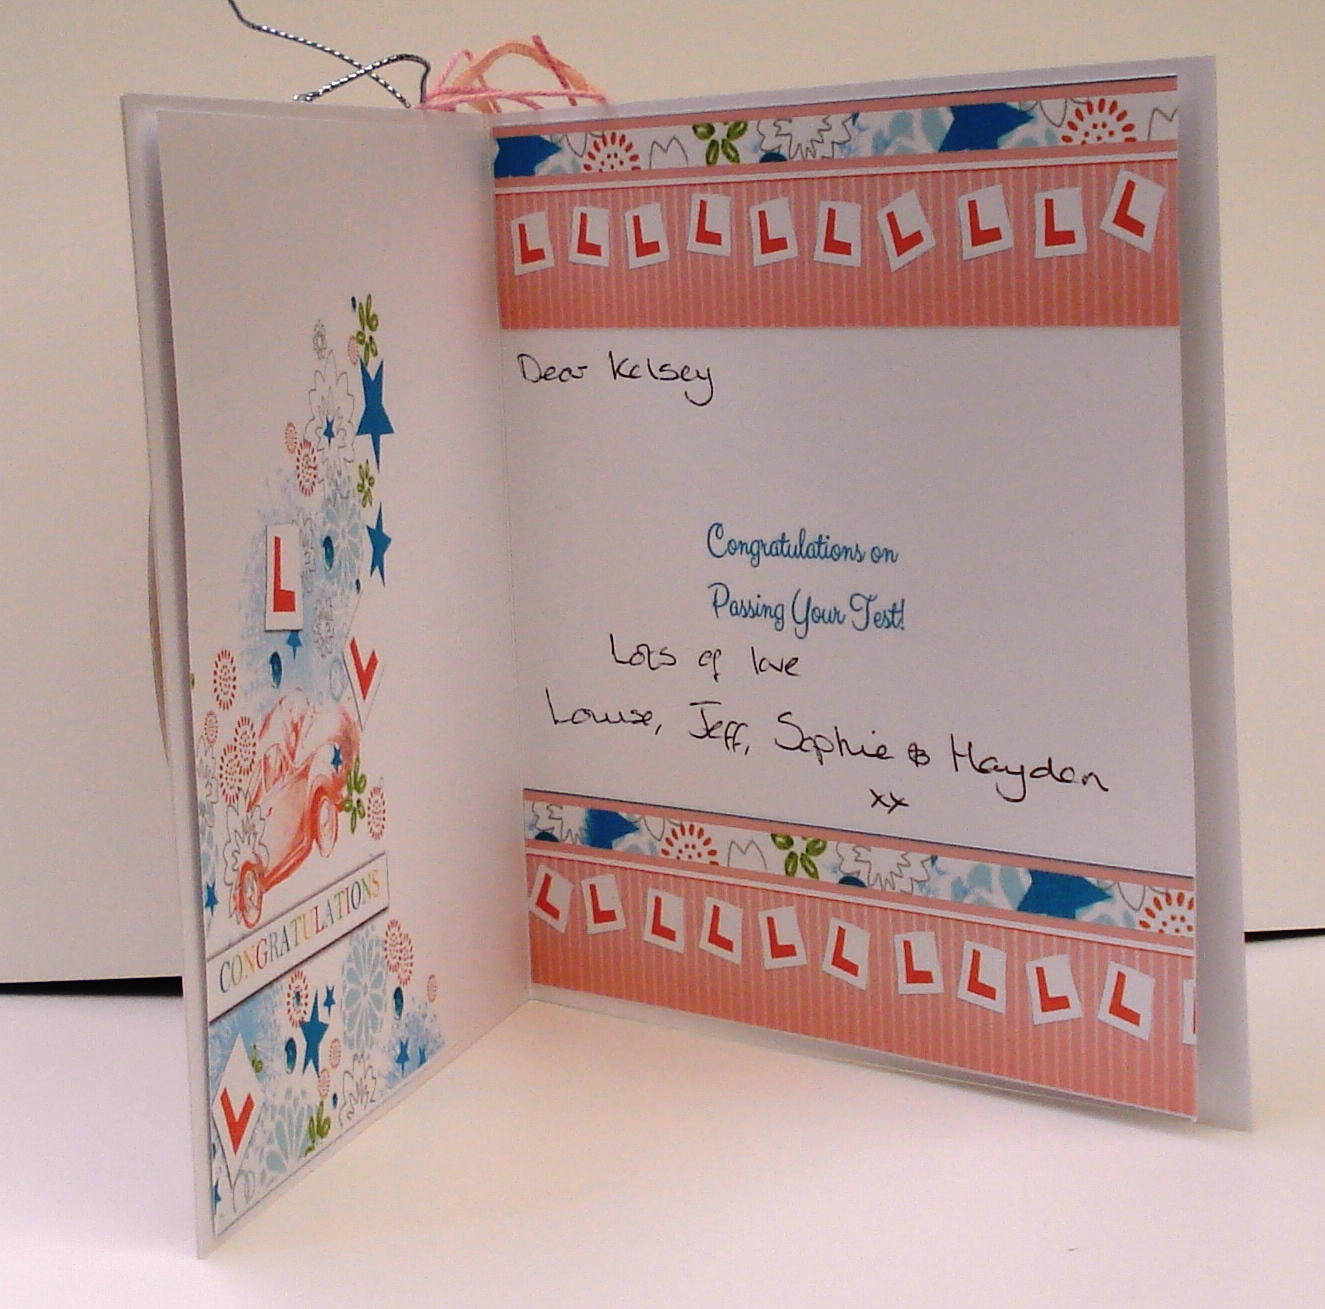 L
L
CONGRATULATIONS
L
L L L L L L L L L L
Dear Kelsey
Congratulations on
Passing Your Test!
Lots of love
Louise, Jeff, Sophie & Hayden
xx
L L L L L L L L L L